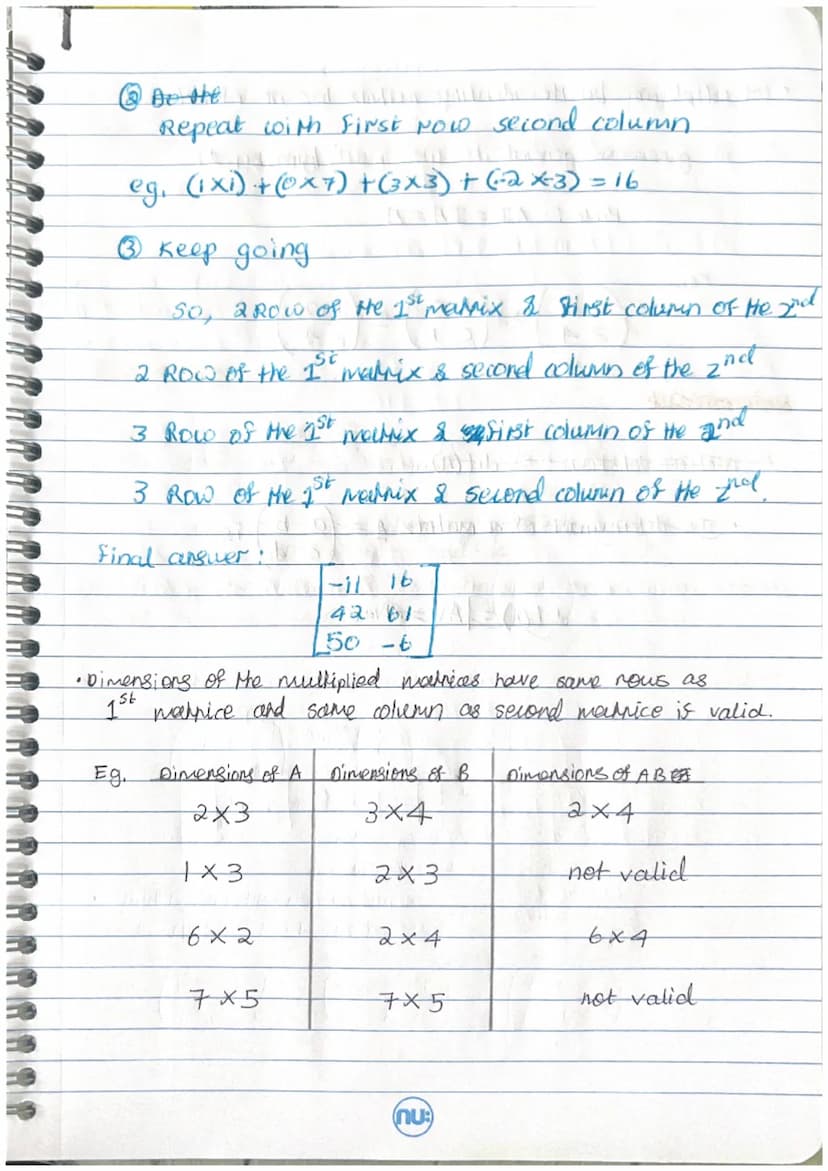 ② Do the
Repeat with first row second column
eg. (1x1) + (0x7) + (3x3) + (-2 x-3) = 16
③ Keep going
So, 2 Row of the 1st matrix & first column of the 2nd
2 Row of the 1st matrix & second column of the 2nd
3 Row of the 1st matrix & first column of the 2nd
3 Row of the 1st matrix & second column of the 2nd.
Final answer :
-11 16
42 61
50 -6
• Dimensions of the multiplied matrices have same rows as
1st matrice and same column as second matrice if valid.
Eg. Dimensions of A Dimensions of B Dimensions of AB
2x3 3x4 2x4
1x3 2x3 not valid
6x2 2x4 6x4
7x5 7x5 not valid
nu: